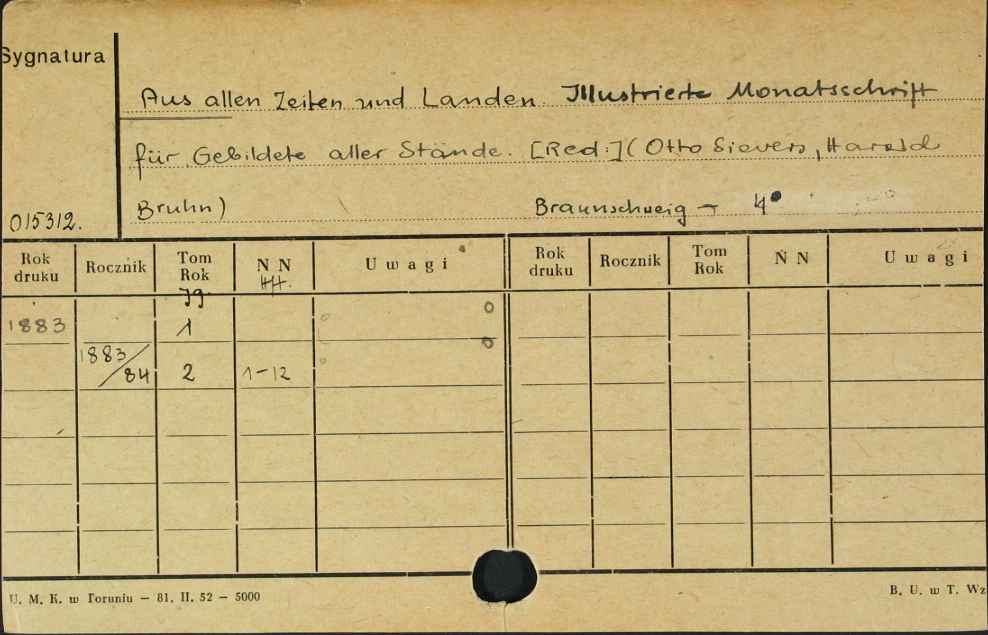 Sygnatura
Aus allen Zeiten und Landen. Illustrierte Monatsschrift
für Gebildete aller Stände. [Red:] (Otto Sievers, Harald
Bruhn) Braunschweig - 4°
015312.
Rok druku Rocznik Tom Rok N N Uwagi Rok druku Rocznik Tom Rok N N Uwagi
Jg. Hft.
1883 1
1883/84 2 1-12
U. M. K. w Toruniu — 81. II. 52 — 5000 B. U. w T. Wz